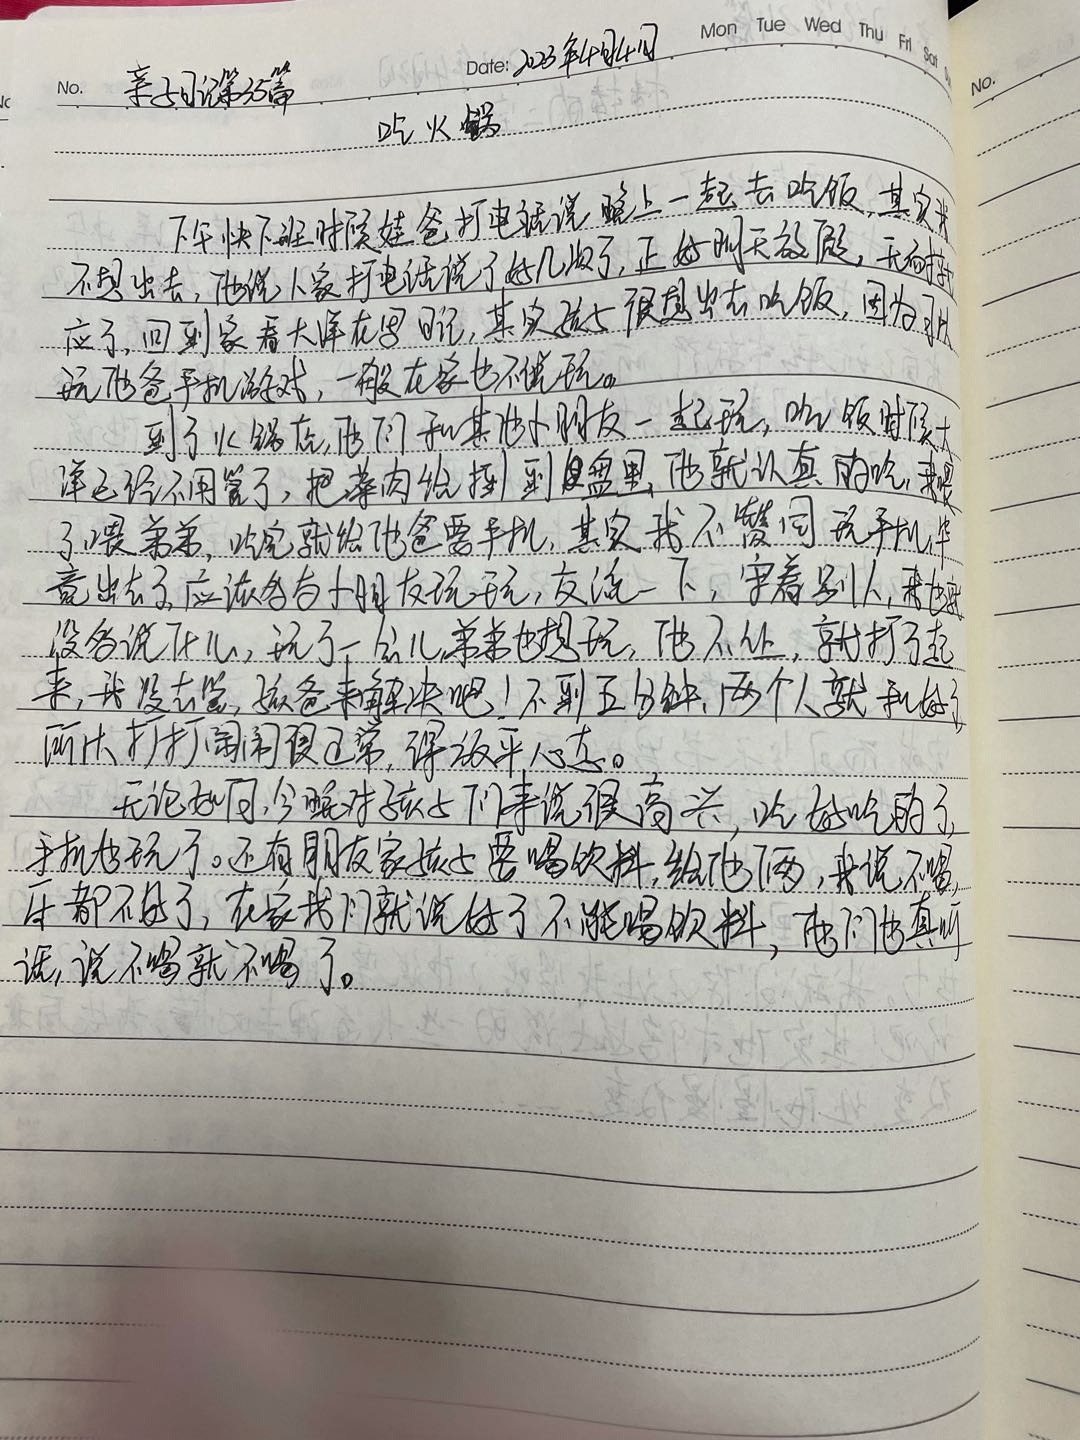 Mon Tue Wed Thu Fri Sat
No. 亲子日记第35篇 Date: 2023年4月4日
No.
吃火锅
下午快下班时候娃爸打电话说晚上一起去吃饭,其实我
不想出去,他说人家打电话说了好几次了,正好明天放假,无奈
应了,回到家看大洋在写日记,其实孩子很想出去吃饭,因为可以
玩他爸手机游戏,一般在家也不让玩。
到了火锅店,他们和其他小朋友一起玩,吃饭时候大
洋已经不用管了,把菜肉给捞到盘里,他就认真的吃,我喂
了喂弟弟,吃完就给他爸要手机,其实我不赞同玩手机,毕
竟出去了,应该多与小朋友玩玩,交流一下,守着别人,我也就
没多说什么,玩了一会儿,弟弟也想玩,他不让,就打了起
来,我没去管,孩爸来解决吧!不到五分钟,两个人就和好了
所以打打闹闹很正常,得放平心态。
无论如何,今晚对孩子们来说很高兴,吃好吃的了,
手机也玩了。还有朋友家孩子要喝饮料,给他俩,我说不喝,
牙都不好了,在家我们就说好了不能喝饮料,他们也真听
话,说不喝就不喝了。